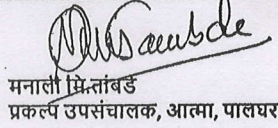 मनाली मि.तांबडे
प्रकल्प उपसंचालक, आत्मा, पालघर